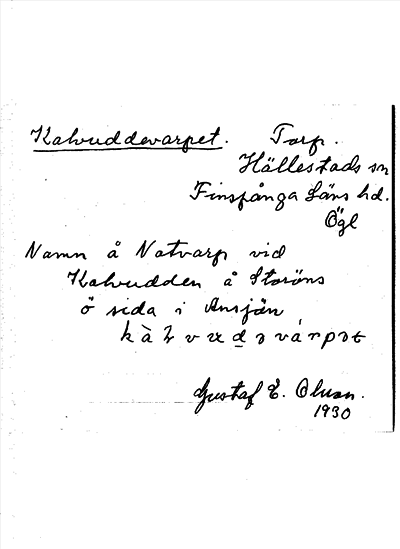 Kalvuddevarpet. Torp.
Hällestads sn
Finspånga Läns hd.
Ögl
Namn å Notvarp vid
Kalvudden å Storöns
ö sida i Ansjön
Gustaf E. Olsson.
1930